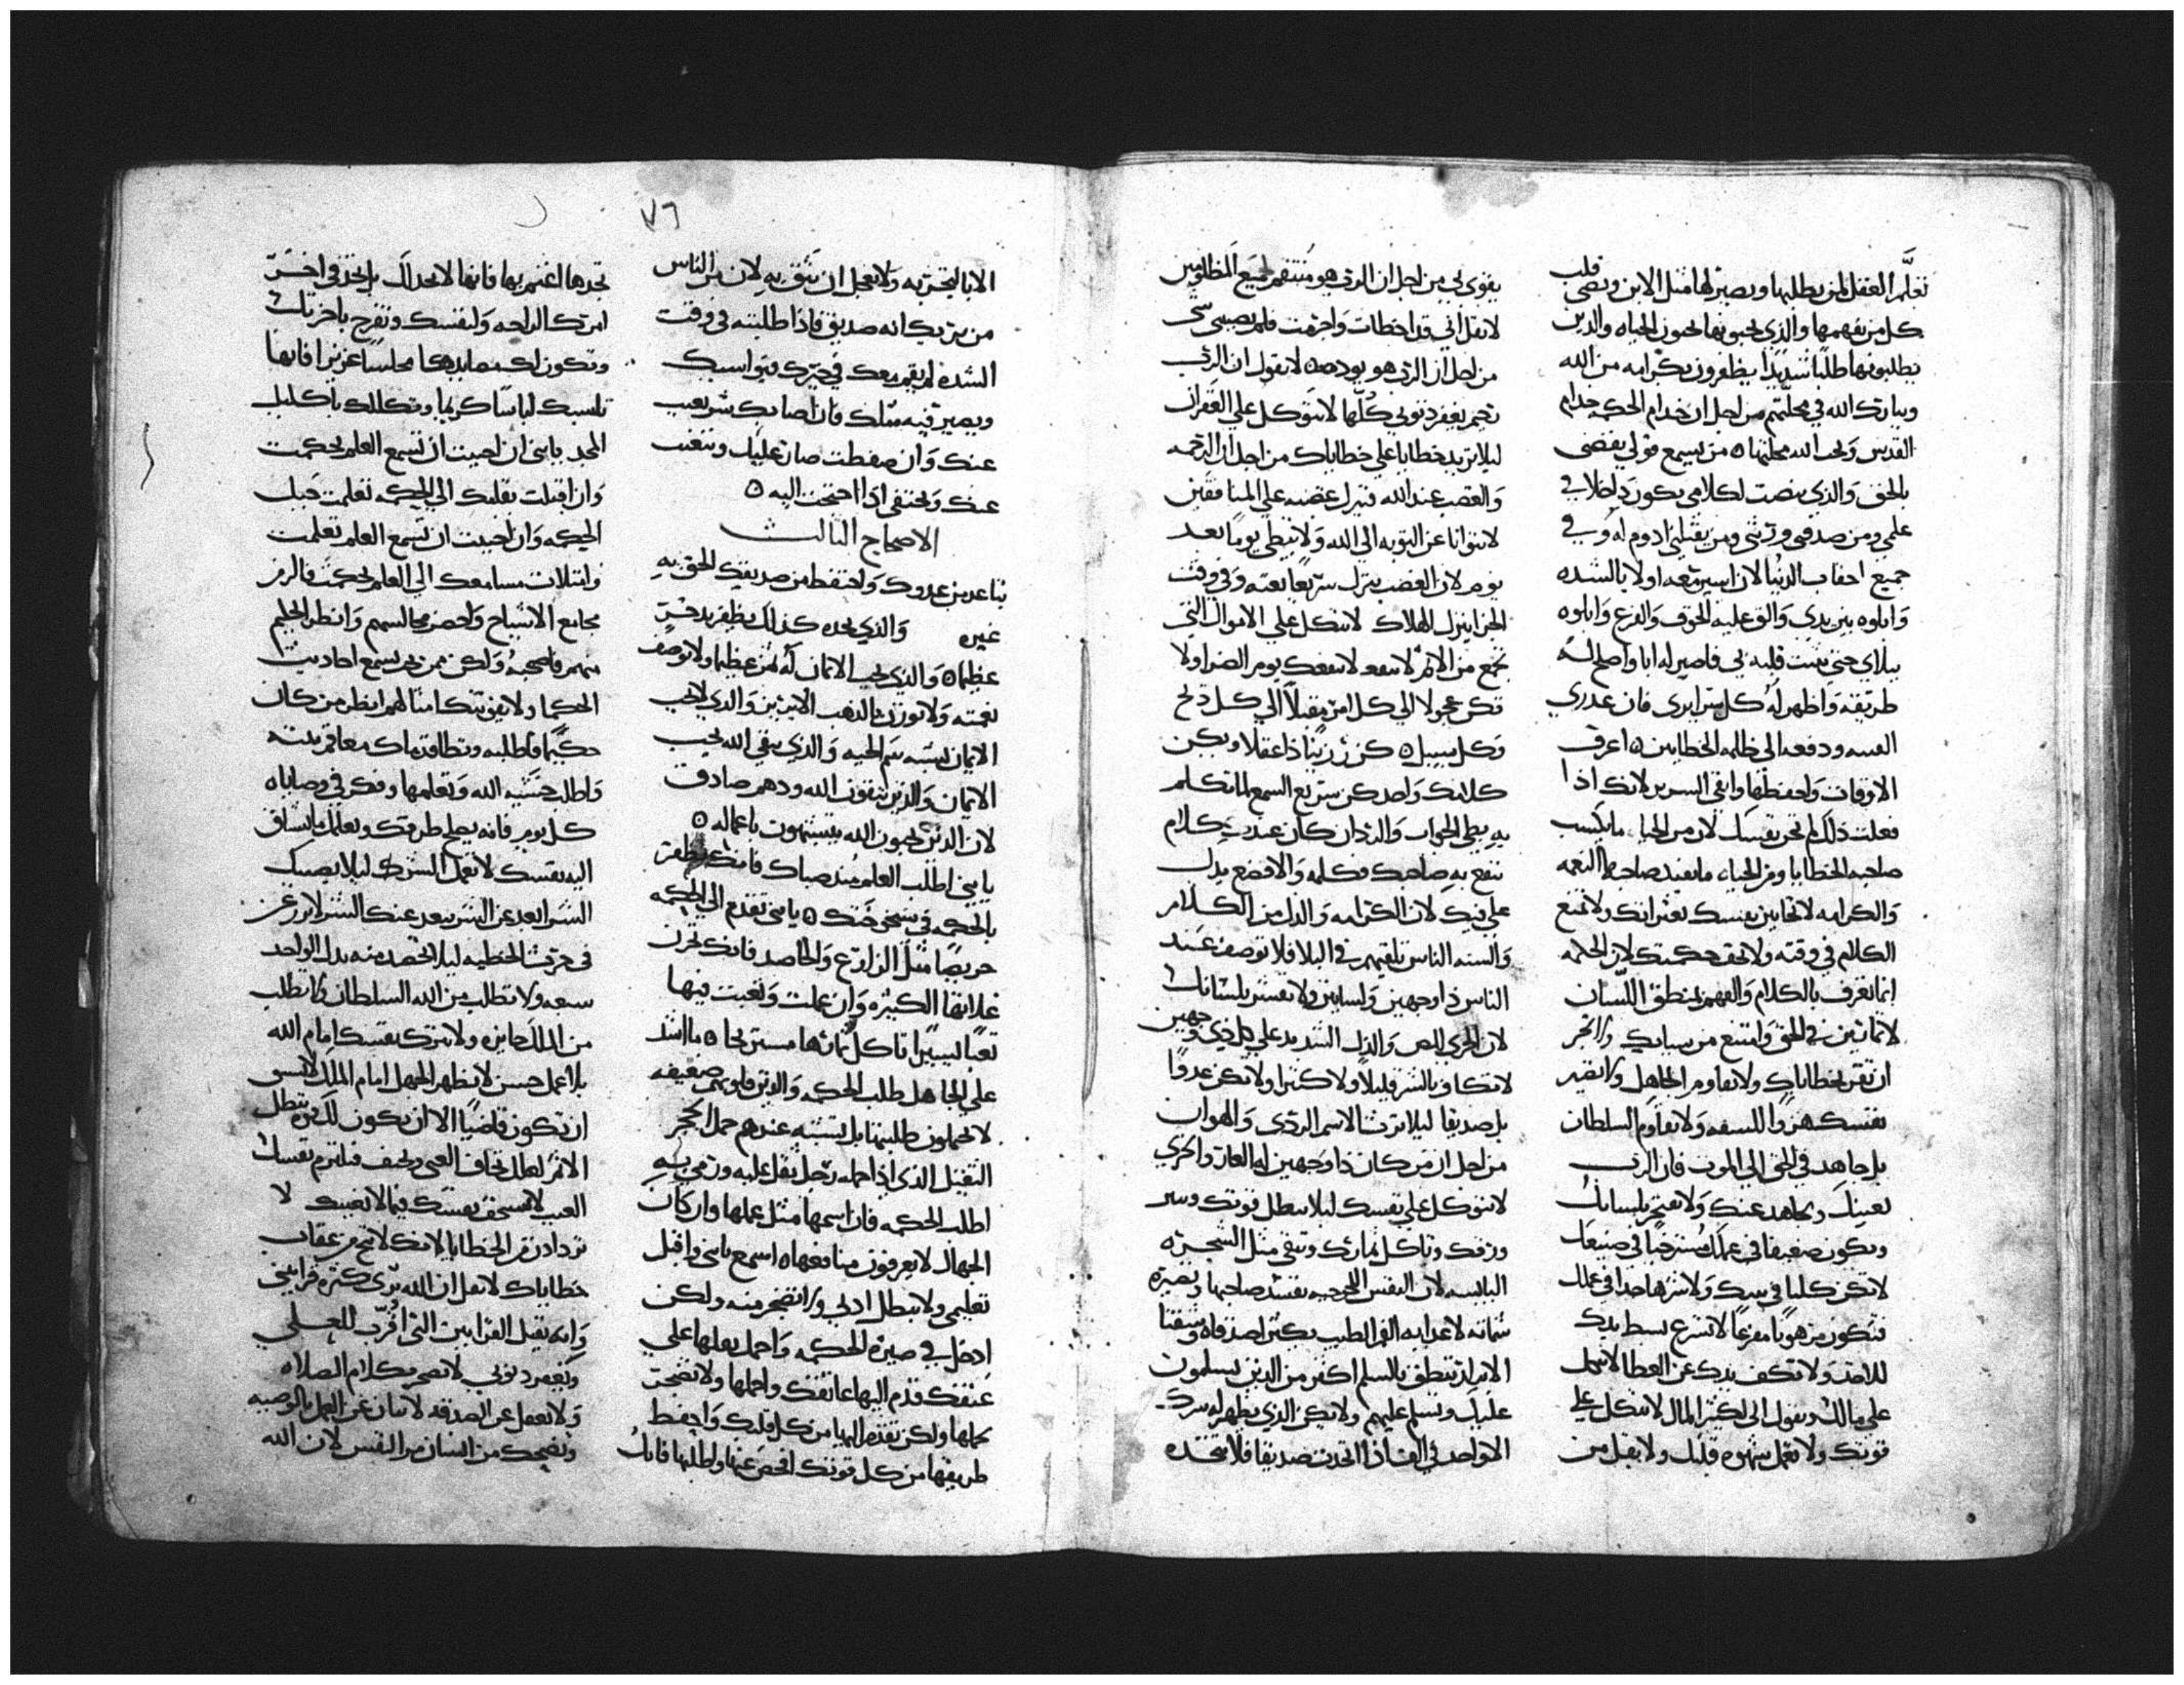 تعلَّم العقل لمن يطلبها ويصير لها مثل الابن ويضي قلب
كل من يفهمها والذي يحبونها يحبون الحياه والدين
يطلبونها طلبًا شديدًا يظفرون بكرامه من الله
ويبارك الله في محلتهم من اجل ان خدام الحكمه خدام
القدس ويحب الله محليها ٥ من يسمع قولي يقضي
بالحق والذي ينصت لكلامي يكون داخلا في
علمي ومن صدقني ورثني ومن يقبلني ادوم له وفي
جميع احقاب الدنيا لان اسير معه اولا بالشده
وابلوه بين يدي والق عليه الخوف والفزع وابلوه
ببلاي حتي يثبت قلبه بي فاصير له ابا واصلح له
طريقه واظهر له كل سرايري فان غدر بي
ودفعه الي ظلمه الخطايين ٥ اعرف
الاوقات واحفظها واتقي الشرير لانك اذا
فعلت ذلك لم تخز نفسك لان من الحيا ما يكسب
صاحبه الخطايا ومن الحياء ما يفيد صاحبه النعمه
والكرامه لا تحابين نفسك بعثراتك ولا تمنع
الكلام في وقته ولا تخف حكمتك لان الحكمه
انما تعرف بالكلام والفهم بمنطق اللسان
لا تمارين في الحق وامتنع من سبابك ولا تخز
ان تقر بخطاياك ولا تقاوم الجاهل ولا تصير
نفسك هزوًا للسفه ولا تقاوم السلطان
بل جاهد في الحق الي الموت فان الرب
يعينك ويجاهد عنك ولا تفتخر بلسانك
وتكون ضعيفا في عملك مسترخيًا في صنيعك
لا تكن كلبا في بيتك ولا شرها جدا في عملك
فتكون مرهوبًا مفزعًا لا تسرع بسط يدك
للاخذ ولا تكف يدك عن العطا لا تتكل
علي مالك وتقول اني لكثير المال لا تتكل علي
قوتك ولا تعمل شهوه قلبك ولا تقل من
يقوي لي من اجل ان الرب هو منتقم لجميع المظلومين
لا تقل اني قد اخطات واجرمت فلم يصيبني شي
من اجل ان الرب هو يوده ٥ لا تقول ان الرب
رحيم يغفر ذنوبي كلها لا تتوكل علي الغفران
ليلا تزيد خطايا علي خطاياك من اجل ان الرحمه
والغضب عند الله فينزل غضبه علي المنافقين
لا تتوانا عن التوبه الي الله ولا تبطي يومًا بعد
يوم لان الغضب ينزل سريعًا بغته وفي وقت
الجزا ينزل الهلاك لا تتكل علي الاموال التي
تجمع من الاثم لا تنفعك يوم الضر اولا
تكن عجولا الي كل امر مقبلًا الي كل ريح
وكل سبيل ٥ كن رزينًا ذا عقل وليكن
كلامك واحد كن سريع السمع لما تكلم
به بطي الجواب والرد ان كان عندك كلام
تنفع به صاحبك فكلمه والا فضع يدك
علي فيك لان الكرامه والذل من الكلام
والسنه الناس تلقيهم في البلا فلا توصف عند
الناس ذا وجهين ولسانين ولا تعثر بلسانك
لان الخزي للص والذل الشديد علي كل ذي وجهين
لا تكافي بالشر قليلًا ولا كثيرا ولا تكن عدوًا
بل صديقا ليلا ترث الاسم الردي والهوان
من اجل ان من كان ذا وجهين له العار والخزي
لا تتوكل علي نفسك ليلا تبطل قوتك وينتر
ورقك وتاكل ثمارك وتبقي مثل الشجره
اليابسه لان النفس اللجوجه تفسد صاحبها وتصيره
شماته لاعدايه الفم الطيب يكثر اصدقاه وشفتا
الابرار تنطق بالسلم اكثر من الدين يسلمون
عليك وتسلم عليهم وليكن الذي تظهر له سرك
الا واحد في الف اذا اتخذت صديقا فلا تتخذه
٧٦
الا بالتجربه ولا تعجل ان تثق به لان من الناس
من يريك انه صديق فاذا طلبته في وقت
الشده لم يقم معك في خيرك فيواسيك
ويصير فيه مثلك فان اصابك شر يغيب
عنك وان سقطت صار عليك وتغيب
عنك ويختفي اذا احتجت اليه ٥
الاصحاح الثالث
تباعد من عدوك واحتفظ من صديقك الحق به
غيره والذي يجده كذلك يظفر بدخر
عظيم ٥ والذي يحب الايمان له ثمن عظيم ولا توصف
نعمته ولا توزن بالذهب الابريز والذي لا يحب
الايمان يشبه سم الحيه والذي يتقي الله يحب
الايمان والذين يتقون الله ودهم صادق
لان الذين يحبون الله يتشبهون باعماله ٥
يا بني اطلب العلم منذ صباك فانك تظفر
بالحكمه في شيخوختك ٥ يا بني تقدم الي الحكمه
حريصًا مثل الزارع والحاصد فانك تخزن
غلاتها الكثيره وان عملت وتعبت فيها
تعبًا يسيرًا تاكل ثمارها مستريحا ٥ ما اشد
علي الجاهل طلب الحكمه والدين قلوبهم ضعيفه
لا يحملون طلبتها بل يشبه عندهم حمل الحجر
الثقيل الذي اذا حمله رجل ثقل عليه ورمي به
اطلب الحكمه فان اسمها مثل عملها وان كان
الجهال لا يعرفون منافعها ٥ اسمع يا بني واقبل
تعليمي ولا تبطل ادبي ولا تضجر منه ولكن
ادخل في صيره الحكمه واحمل نعلها علي
عنقك قدم اليها عاتقك واحملها ولا تضجر
بحملها ولكن تقدم اليها من كل قلبك واحفظ
طريقها من كل قوتك افحص عنها واطلبها فانك
تجدها اغتنم بها فانها لا تخذلك بل تجد في اخر
امرك الراحه ولنفسك وتفرح باخرتك
وتكون لك مجلسًا عزيزا فانها
تلبسك لباسًا كريما وتكللك باكليل
المجد يا بني ان احببت ان تسمع العلم بحكمت
وان اقبلت بقلبك الي الحكمه تعلمت حيل
الحكمه وان احببت ان تسمع العلم تعلمت
وامتلات مسامعك الي العلم بحكمت فالزم
مجامع الاشياخ واحضر مجالسهم وانظر الحليم
منهم فاصحبهُ ولكن ممن يسمع احاديث
الحكما ولا يفوتك امثالهم انظر من كان
حكيمًا فاطلبه وتطا قدماك معاقم بيته
واطلب خشيه الله وتعلمها وفكر في وصاياه
كل يوم فانه يصلح طريقك ويعلمك ما تشتاق
اليه نفسك لا تعمل الشر ليلا يصيبك
الشر ابعد عن الشر يبعد عنك الشر لا تزرع
في حرث الخطيه ليلا تحصده منه بدل الواحد
سبعه ولا تطلب من الله السلطان ولا تطلب
من الملك جايزه ولا تزك نفسك امام الله
بلا عمل حسن لا تظهر الجهل امام الملك لا تنس
ان تكون قاضيًا الا ان يكون لك تبطل
الاثم لعلك تخاف الغني وتحيف فتلتزم نفسك
العيب لا تستخف بنفسك فيما لا يعنيك لا
تزداد من الخطايا لانك لا تنج من عقاب
خطاياك لا تقل ان الله يري كثره قرابيني
وانه يقبل القرابين التي اقُرّب للعلي
ويغفر ذنوبي لا تضجر بكلام الصلاه
ولا تغفل عن الصدقه لا تتوان عن العمل بالوصيه
وتضحك من انسان مر النفس لان الله